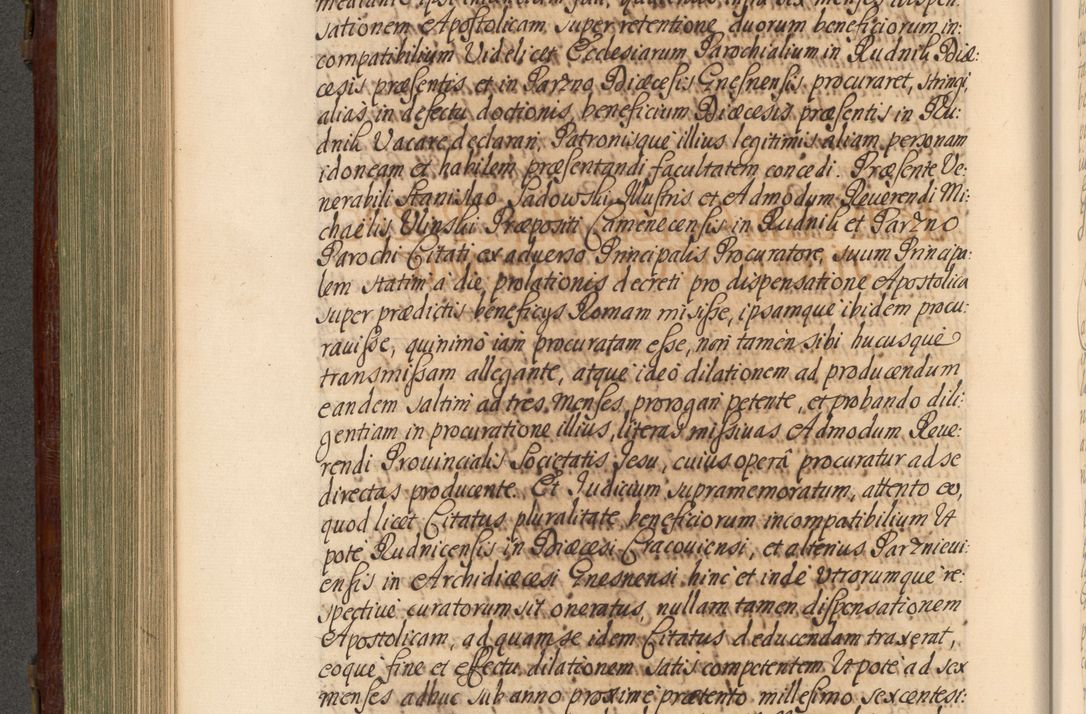 sationem Apostolicam super retentione duorum beneficiorum in:
compatibilium Videlicet Ecclesiarum Parochialium in Rudnik Diæ:
cesis præsentis et in Parzno Diæcesis Gnesnensis procuraret, stringi,
alias in defectu doctionis, beneficium Diæcesis præsentis in Ru:
dnik Vacare declarari, Patronisque illius legitimis aliam personam
idoneam et habilem præsentandi facultatem concedi. Præsente Ve:
nerabili Stanislao Sadowski Illustris et Admodum Reuerendi Mi:
chaelis Ulinski Præpositi Camenecensis in Rudnik et Parzno
Parochi Citati ex aduerso Principalis Procuratore, suum Principa:
lem statim a die prolationis decreti pro dispensatione Apostolica
super prædictis beneficys Romam misisse, ipsamque ibidem procu:
rauisse, quinimo iam procuratam esse, non tamen sibi hucusque
transmissam allegante, atque ideo dilationem ad producendum
eandem saltim ad tres menses prorogari petente, et probando dili:
gentiam in procuratione illius, literas missiuas Admodum Reue:
rendi Prouincialis Societatis Jesu, cuius operâ procuratur ad se
directas producente. Et Judicium supramemoratum, attento eo,
quod licet Citatus pluralitate beneficiorum incompatibilium Ut
pote Rudnicensis in Diæcesi Cracouiensi, et alterius Parznieui:
ensis in Archidiæcesi Gnesnensi hinc et inde Utrorumque re:
spectiue curatorum sit oneratus, nullam tamen dispensationem
Apostolicam, ad quam se idem Citatus deducendam traxerat,
eoque fine et effectu dilationem satis competentem Ut pote ad sex
menses adhuc sub anno proxime præterito millesimo sexcentesi: